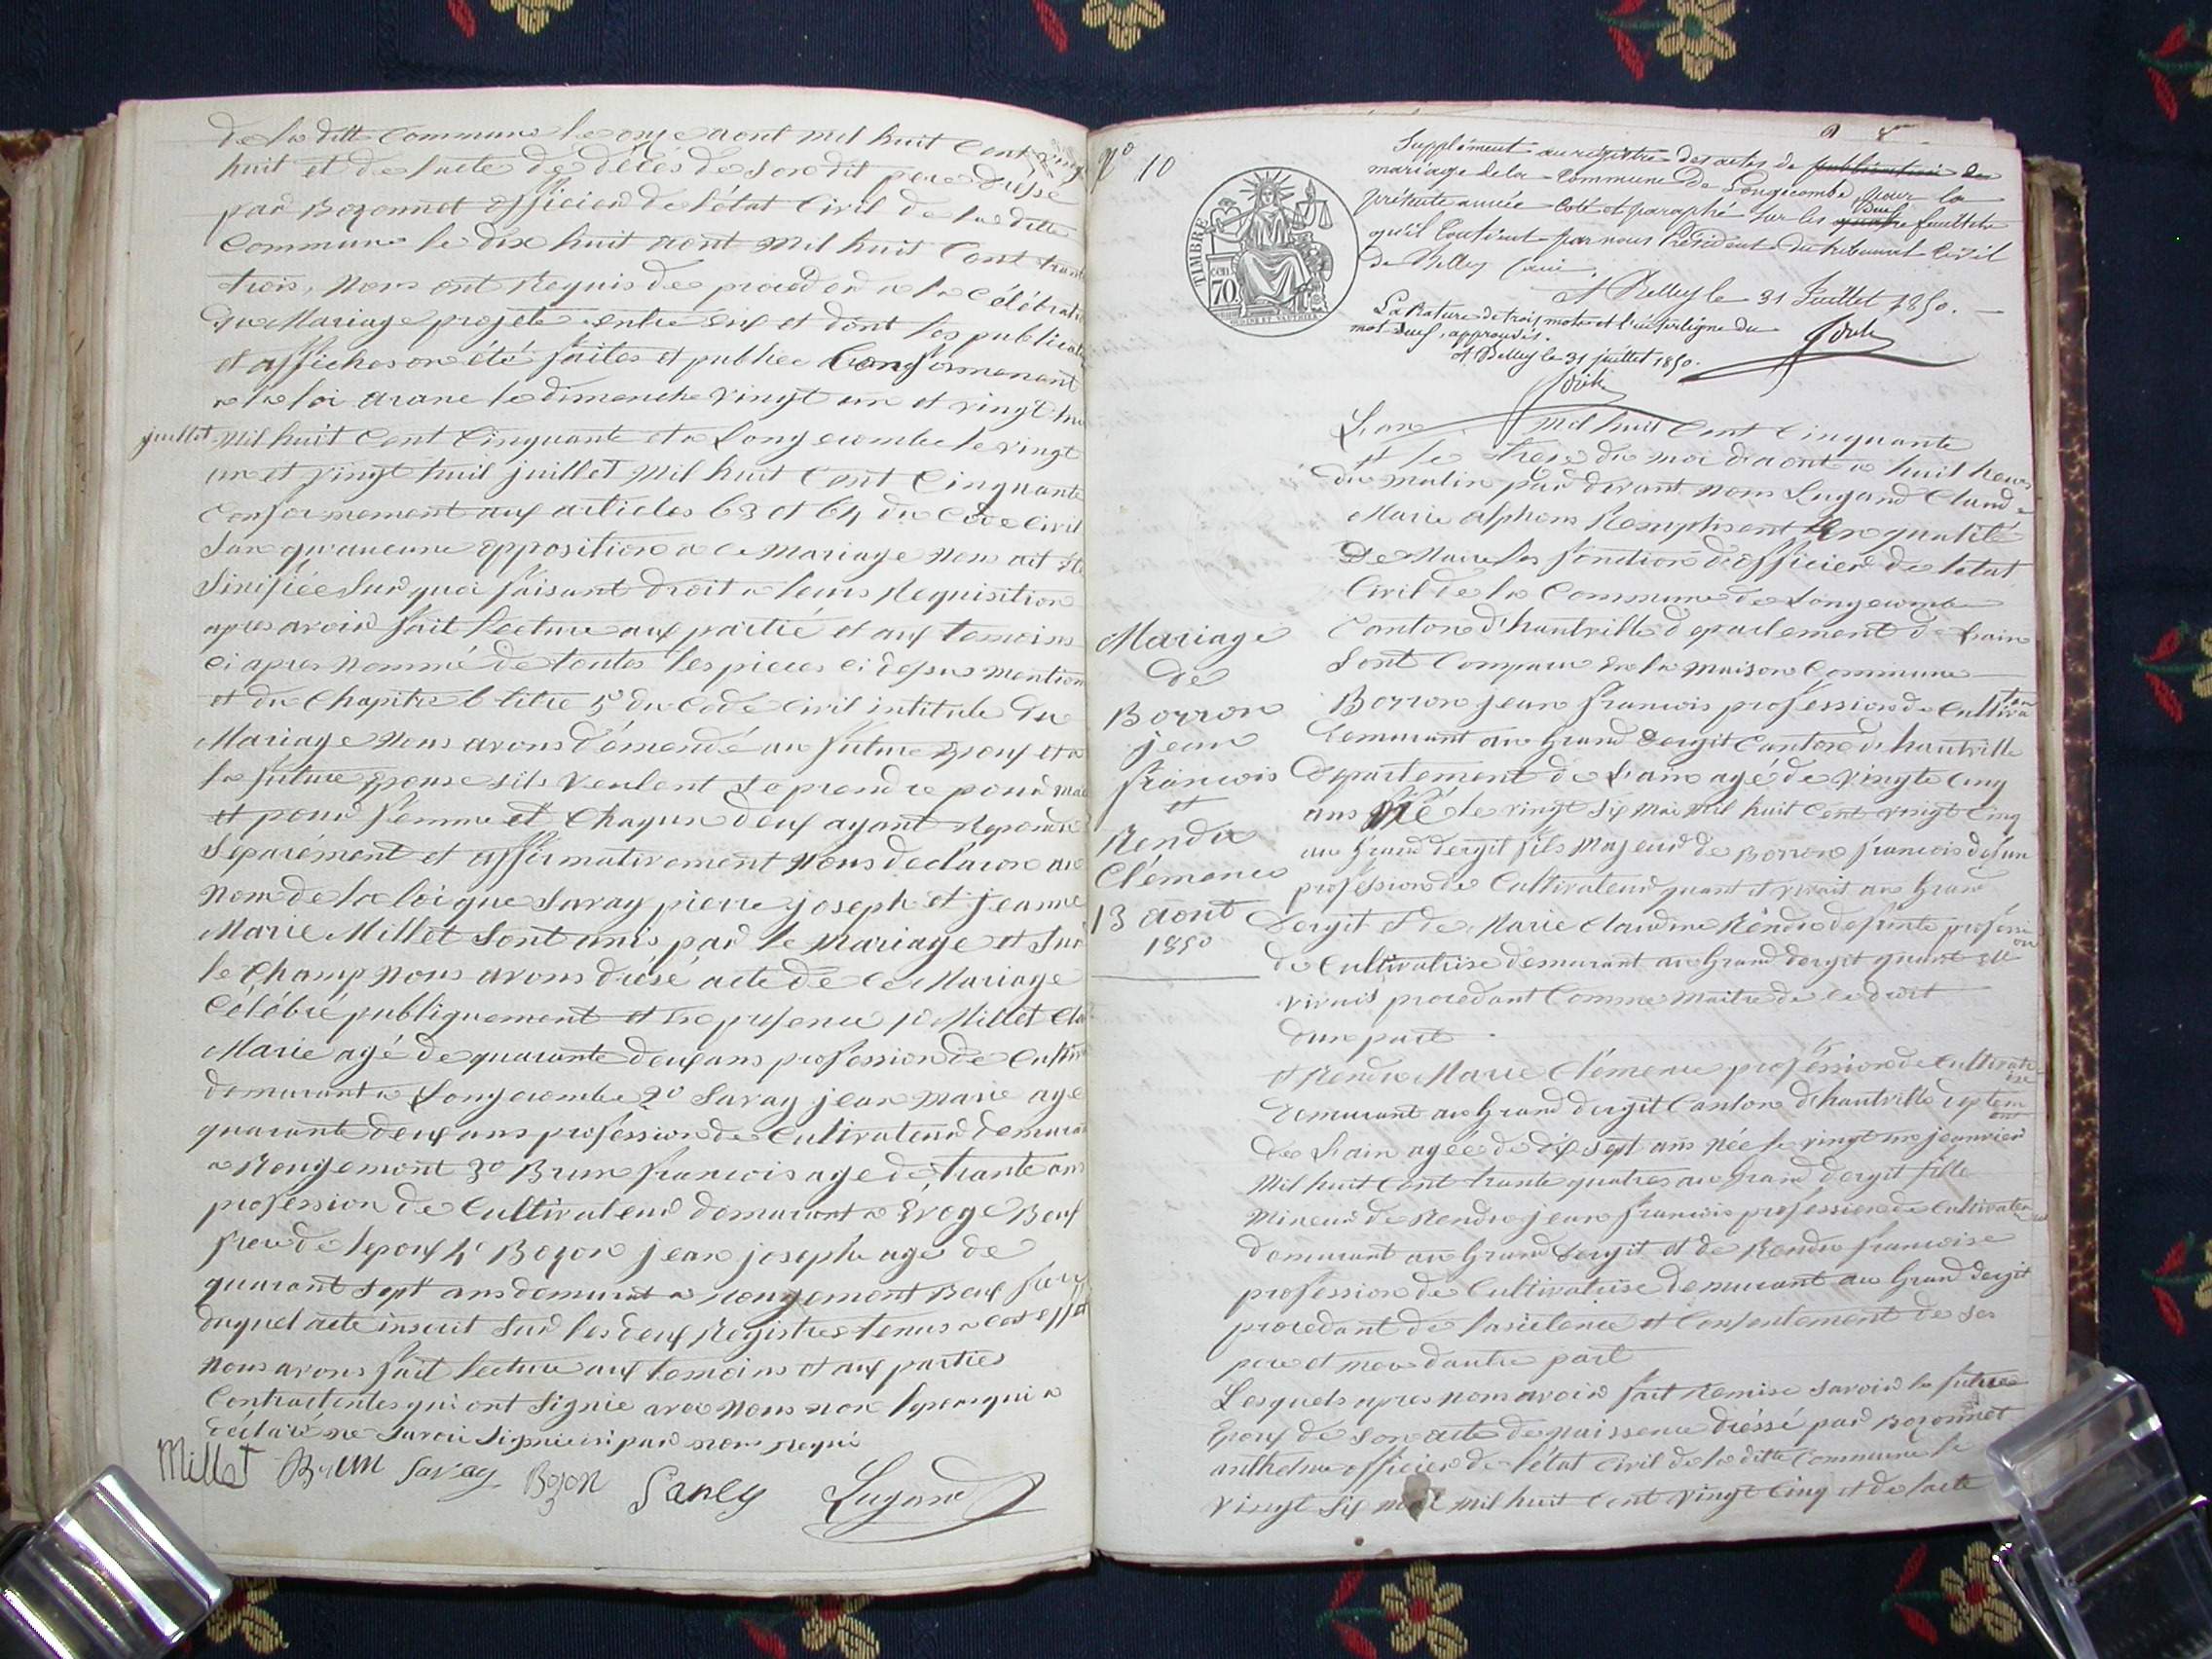 de la ditte Commune le onze aout mil huit Cent vingt
huit et de lacte de décés de son dit pere dressé
par Bozonnet officier de létat Civil de la ditte
Commune le dix huit aout mil huit Cent trante
trois, nous ont Requis de procéder a la célébration
du Mariage projeté entre eux et dont les publications
et affiches on été faites et publiée Conformement
a la loi arane le dimenche vingt un et vingt huit
juillet Mil huit Cent Cinquante et a Longecombe le vingt
un et vingt huit juillet Mil huit Cent Cinquante
Conformement aux articles 63 et 64 du Code Civil
San qu'aucune opposition a ce Mariage nous ait été
Sinifiée Sur quoi faisant droit a leurs Requisition
apres avoir fait Lecture aux partié et aux temoins
ci apres nommé de toutes les pieces ci depus mention
et du Chapitre 6 titre 5 du Code Civil intitule du
Mariage Nous avons démendé au future Epoux et a
la future Epouse sils veulent se prendre pour mari
et pour femme et Chaqun deux ayant Répondu
Séparément et affirmativement Nous declaron au
Nom de la loi que Savay pierre joseph et jeanne
Marie Millet Sont unis par le Mariage et sur
le Champ Nous avons drésé acte de Ce Mariage
Célébré publiquement et en presence 1o Millet
Marie agé de quarante deux ans profession de Cultiv
demurant a Longecombe 2o Savay jean Marie agé
quarante deux ans profession de Cultivateur demurant
a Rougemont 3o Brun francois age de trante ans
profession de Cultivateur demurant a Evoge Beux
frere de lepoux 4o Bozon jean joseph agé de
quarant Sept ans demurant a Rougemont Beux frere
duquel acte inscrit Sur les deux Registres tenus a cet effet
Nous avons fait lecture aux temoins et aux parties
Contractentes qui ont signié avec Nous non lepous qui a
déclaré ne Savoir Signier par nom requi
Millet Brun Savay Bozon Savey Lugand
No 10
Supplément au registre des actes de publication de
mariage de la Commune de Longecombe, pour la
présente année Coté et paraphé sur les quatre deux feuillets
qu'il Contient par nous Président du tribunal Civil
de Belley (ain).
A Belley le 31 Juillet 1850.
TIMBRE
70
La Rature de trois mots et l'interligne du
mot deux, approuvés.
A Belley le 31 juillet 1850.
L'an Mil huit Cent Cinquante
et le trese du moi daout a huit heures
du matin par devant nous Lugand Claude
Marie alphons Remplisent En qualité
De Maire les fonction d'officier de létat
Civil de la Commune de Longecombe
Canton d'hautville departement de Lain
Sont Comparu en la Maison Commune
Mariage
de
Borron
jean
francois
et
Rendu
Clémence
13 aout
1850
Borron jean francois profession de Cultivateur
demurant au Grand dergit Canton de hautville
Departement de Lain agé de vingte cinq
ans Né le vingt six Mai mil huit Cent vingt Cinq
au Grand dergit fils Majeur de Borron francois defun
profession de Cultivateur quant il vivait au Grand
dergit et de Marie Claudine Rendu defunte profession
de Cultivatrise demurant au Grand dergit quant elle
vivais procedant Comme maitre de ce droit
dune part
et Rendu Marie Clémence profession de Cultivatrise
demurant au Grand dergit Canton d'hautville deptement
de Lain agée de dix sept ans née le vingt un jeanvier
Mil huit Cent trante quatres au Grand dergit fille
Mineur de Rendu jean francois profession de Cultivateur
demurant au Grand dergit et de Rendu francoise
profession de Cultivatrise demurant au Grand dergit
procedant de lasistence et Consentement de Ses
pere et mere dautre part
Lesquels apres nous avoir fait Remise savoir le future
Epoux de Son acte de naissence dréssé par Bozonnet
anthelme officier de létat Civil de la ditte Commune le
vingt six mai mil huit Cent vingt Cinq et de lacte